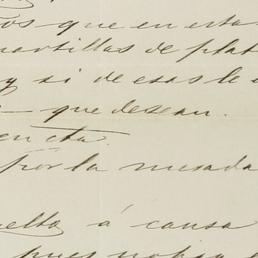 os que en esta
martillos de plat
y si de esas le
que desean.
en cta.
por la mesada
uelto á causa
pues